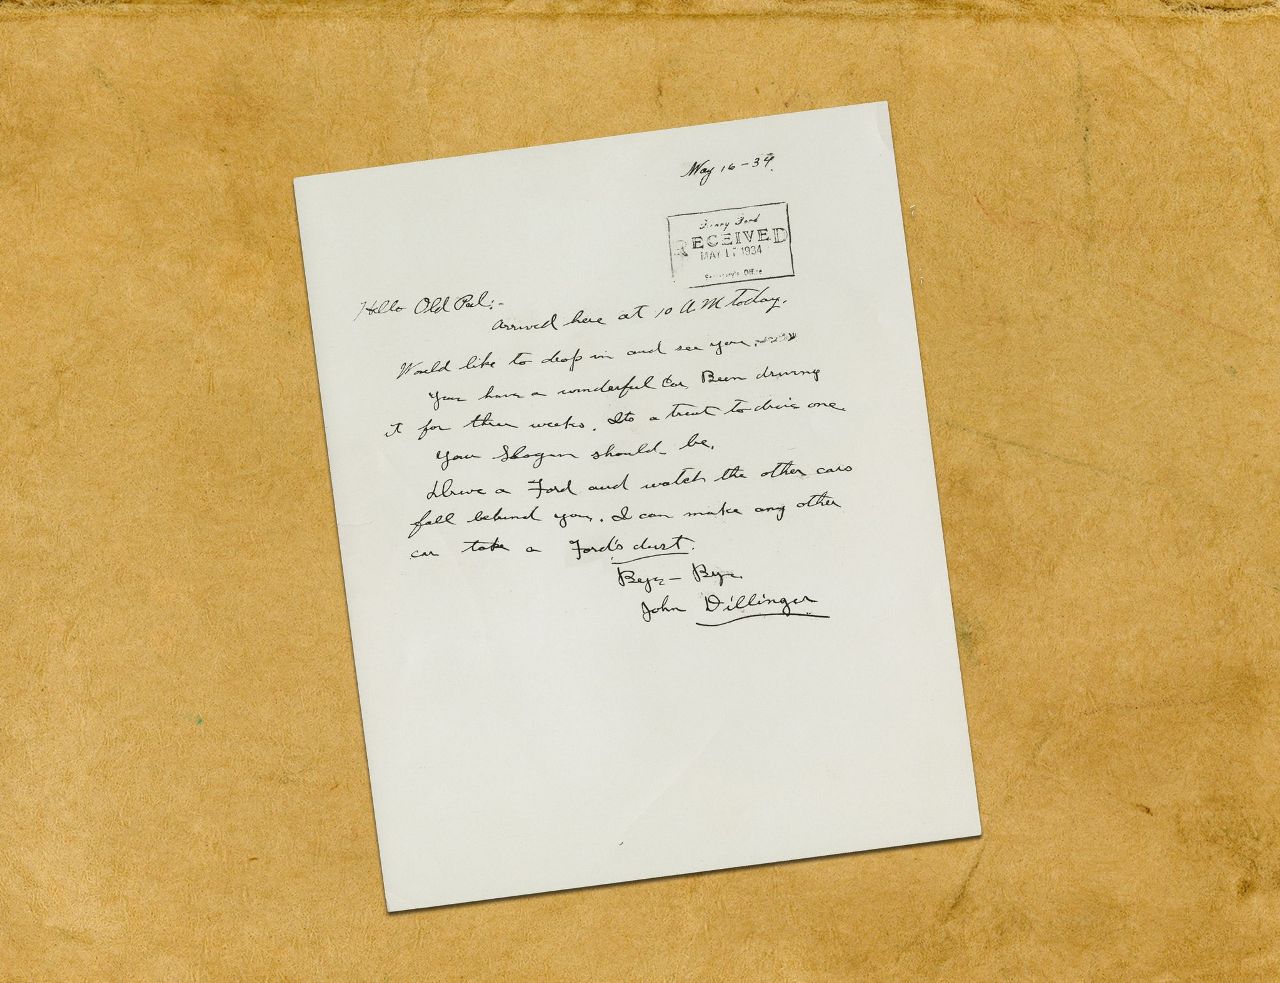 May 16-34.
Henry Ford
RECEIVED
MAY 17 1934
Secretary's Office
Hello Old Pal:-
Arrived here at 10 AM today.
Would like to drop in and see you.
You have a wonderful car. Been driving
it for three weeks. Its a treat to drive one.
Your Slogan should be.
Drive a Ford and watch the other cars
fall behind you. I can make any other
car take a Ford's dust.
Bye-Bye.
John Dillinger